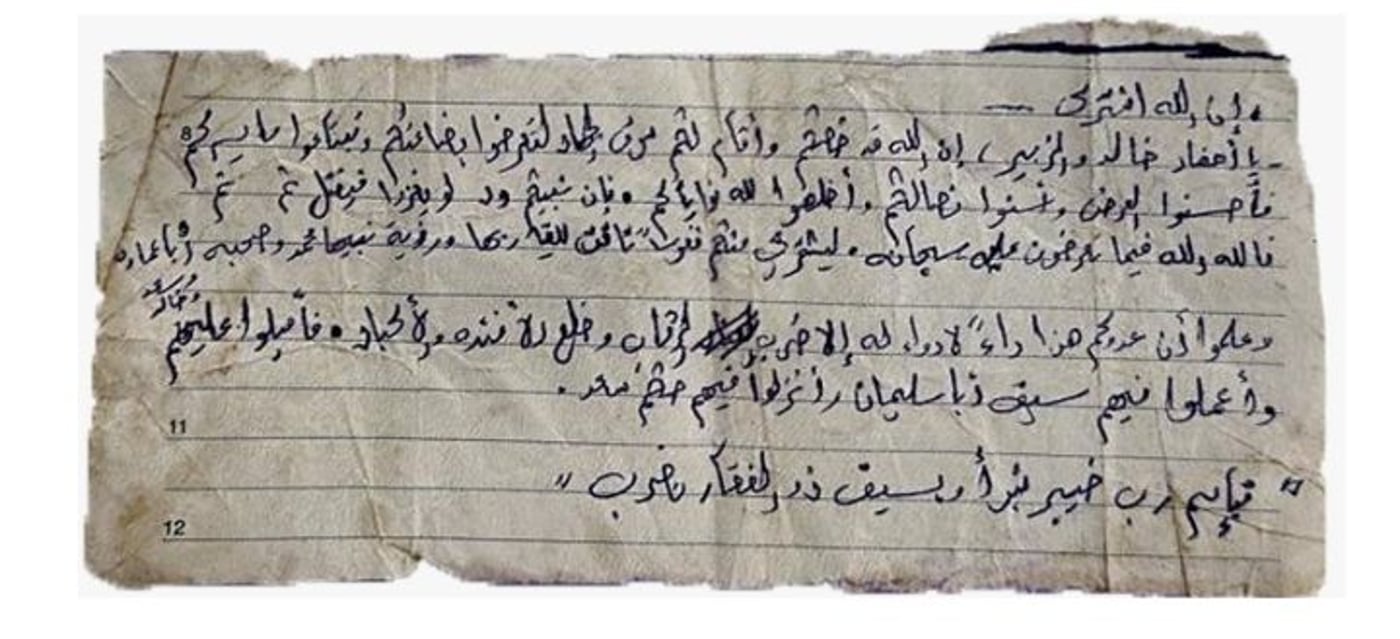 ، إن الله اشترى —
- يا أحفاد خالد والزبير ، إن الله قد خصكم وأقام لكم سوق جهاد لتعرضوا بضاعتكم وتبتاعوا ما يسركم
8
فأحسنوا العرض وأخلصوا لله نواياكم . فإن نبيكم ود لو يغزوا فيقتل ثم ثم
فالله الله فيما تعرضون عليه سبحانه . ليشتري منكم نفوساً تاقت للقاء ربها ورؤية نبيها محمد وصحبه
وعلموا أن عدوكم هذا داءً لا دواء له إلا ضرب الرقاب وخلع الأفئدة والأكباد . فأقبلوا عليهم
وأعملوا فيهم سيوف أبا سليمان وأنزلوا فيهم حكم سعد .
11
" فبإسم رب خيبر نبرأ وبسيف ذو الفقار نضرب "
12